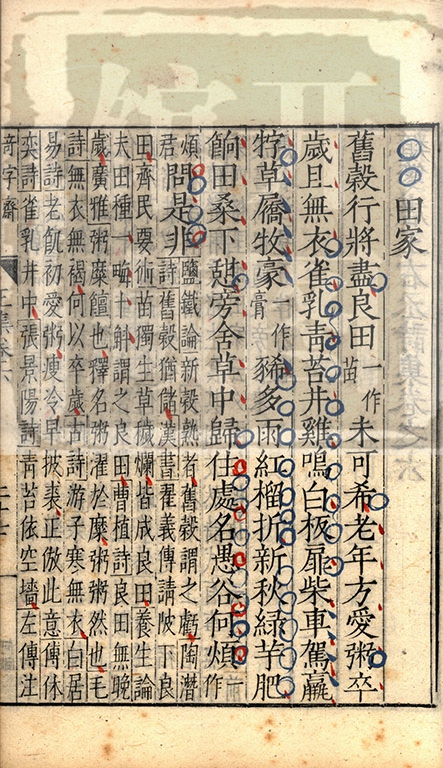 田家
舊穀行將盡良田一作苗未可希老年方愛粥卒
歲且無衣雀乳青苔井雞鳴白板扉柴車駕羸
牸草屩牧豪一作膏豨多雨紅榴折新秋綠芋肥
餉田桑下憩旁舍草中歸住處名愚谷何煩作
煩君問是非鹽鐵論新穀熟者舊穀謂之虧陶潛
詩舊穀猶儲漢書翟義傳請陂下良
田齊民要術苗獨生草穢爛皆成良田養生論
夫田種一畮十斛謂之良田曹植詩良田無晚
歲廣雅粥糜饘也釋名粥濯於糜粥粥然也毛
詩無衣無褐何以卒歲古詩游子寒無衣白居
易詩老飢初愛粥瘦冷早披裘正倣此意傅休
奕詩雀乳井中張景陽詩青苔依空牆左傳注
奇字齋